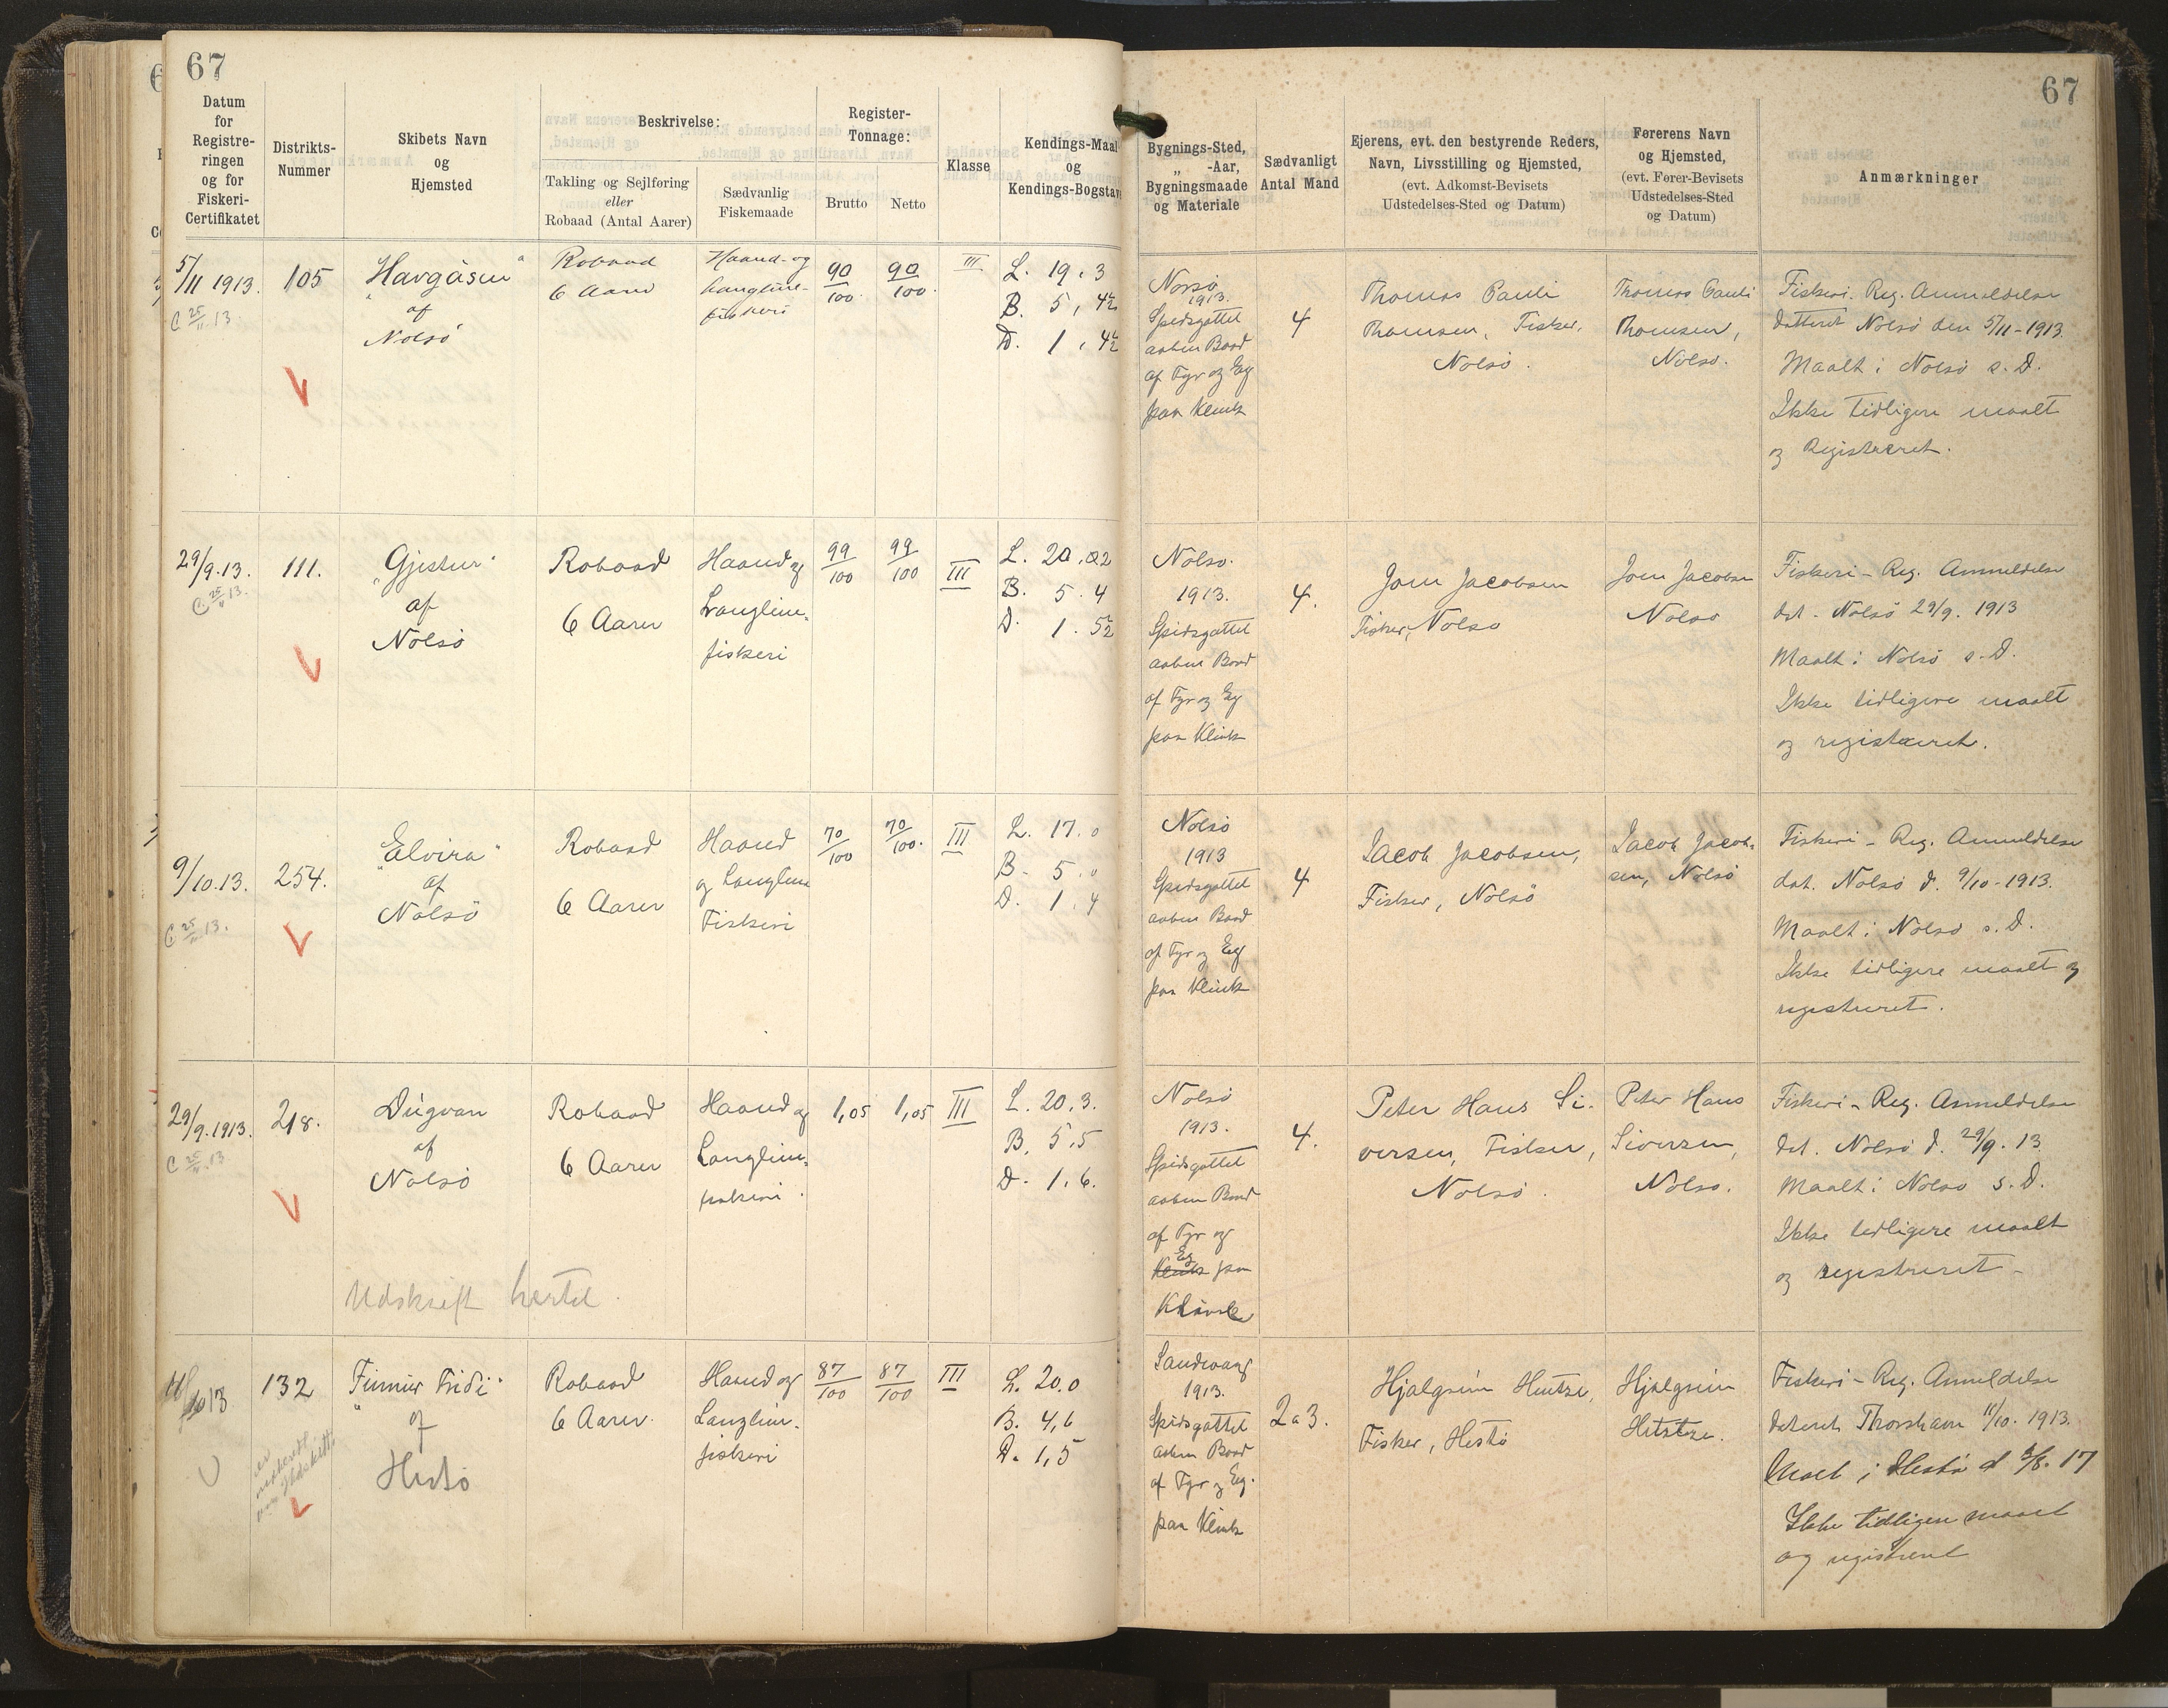 67
67
Datum
for
Registre-
ringen
og for
Fiskeri-
Certifikatet
Distrikts-
Nummer
Skibets Navn
og
Hjemsted
Beskrivelse:
Takling og Sejlføring
eller
Robaad (Antal Aarer)
Sædvanlig
Fiskemaade
Register-
Tonnage:
Brutto
Netto
Klasse
Kendings-Maal
og
Kendings-Bogstav
Bygnings-Sted,
„ -Aar,
Bygningsmaade
og Materiale
Sædvanligt
Antal Mand
Ejerens, evt. den bestyrende Reders,
Navn, Livsstilling og Hjemsted,
(evt. Adkomst-Bevisets
Udstedelses-Sted og Datum)
Førerens Navn
og Hjemsted,
(evt. Fører-Bevisets
Udstedelses-Sted
og Datum)
Anmærkninger
5/11 1913.
C 25/11 13
105
"Havgásin"
af
Nolsö
Robaad
6 Aarer
Haand- og
Langline-
fiskeri
90/100
90/100
III
L. 19,3
B. 5,4½
D. 1,4½
1913.
Spidsgattet
aaben Baad
af Fyr og Eg
paa Klink
4
Thomas Pauli
Thomsen, Fisker,
Nolsö.
Thomas Pauli
Thomsen,
Nolsö.
Fiskeri. Reg. Anmeldelse
datteret Nolsö den 5/11-1913
Maalt i Nolsö s. D.
Ikke tidligere maalt
og Registreret.
29/9.13.
C 25/11 13.
111.
"Gjestur"
af
Nolsö
Robaad
6 Aarer
Haand og
Langline-
fiskeri
99/100
99/100
III
B. 5.4
D. 1.5½
Nolsö.
1913.
Spidsgattet
aaben Baad
af Fyr og Eg
paa Klink
4.
Joen Jacobsen
Fisker, Nolsö
Joen Jacobsen
Nolsö
Fiskeri-Reg. Anmeldelse
dat. Nolsö 29/9. 1913
Maalt i Nolsö s. D.
Ikke tidligere maalt
og registreret.
9/10.13.
C 25/11 13.
254.
"Elvira"
af
Nolsö
Robaad
6 Aarer
Haand
og Langline
Fiskeri
70/100
70/100.
III
L. 17.0
B. 5.0
D. 1.4
Nolsö
1913
Spidsgattet
aaben Baad
af Fyr og Eg
paa Klink
4
Jacob Jacobsen,
Fisker, Nolsö
Jacob Jacob-
sen, Nolsö
Fiskeri-Reg. Anmeldelse
dat. Nolsö d. 9/10-1913.
Maalt i Nolsö s. D.
Ikke tidligere maalt og
registreret.
29/9.1913.
C 25/11.13
218.
Dúgvan
af
Nolsö
Robaad
6 Aarer
Haand og
Langline-
fiskeri.
1,05
1,05
III
L. 20.3.
B. 5.5
D. 1.6.
Udskrift
Nolsö
1913.
Spidsgattet
aaben Baad
af Fyr og
Eg
Klink paa
4.
Peter Hans Si-
versen, Fisker,
Nolsö.
Peter Hans
Siversen,
Nolsö.
Fiskeri-Reg. Anmeldelse
dat. Nolsö d. 29/9. 13
Maalt i Nolsö s. D.
Ikke tidligere maalt
og registreret-
11/10 13
132
"Finnur Fridi"
af
Hestö
Robaad
6 Aarer.
Haand og
Langline-
fiskeri
87/100
87/100
III
L. 20.0
B. 4,6
D. 1,5
1913.
Spidsgattet
aaben Baad
af Fyr og Eg.
paa Klink
2 a 3.
Hjalgrim Hentze,
Fisker, Hestö
Hjalgrim
Fiskeri-Reg. Anmeldelse
dateret Thorshavn 11/10. 1913.
Maalt i Hestö d
Ikke tidligere maalt
og registreret